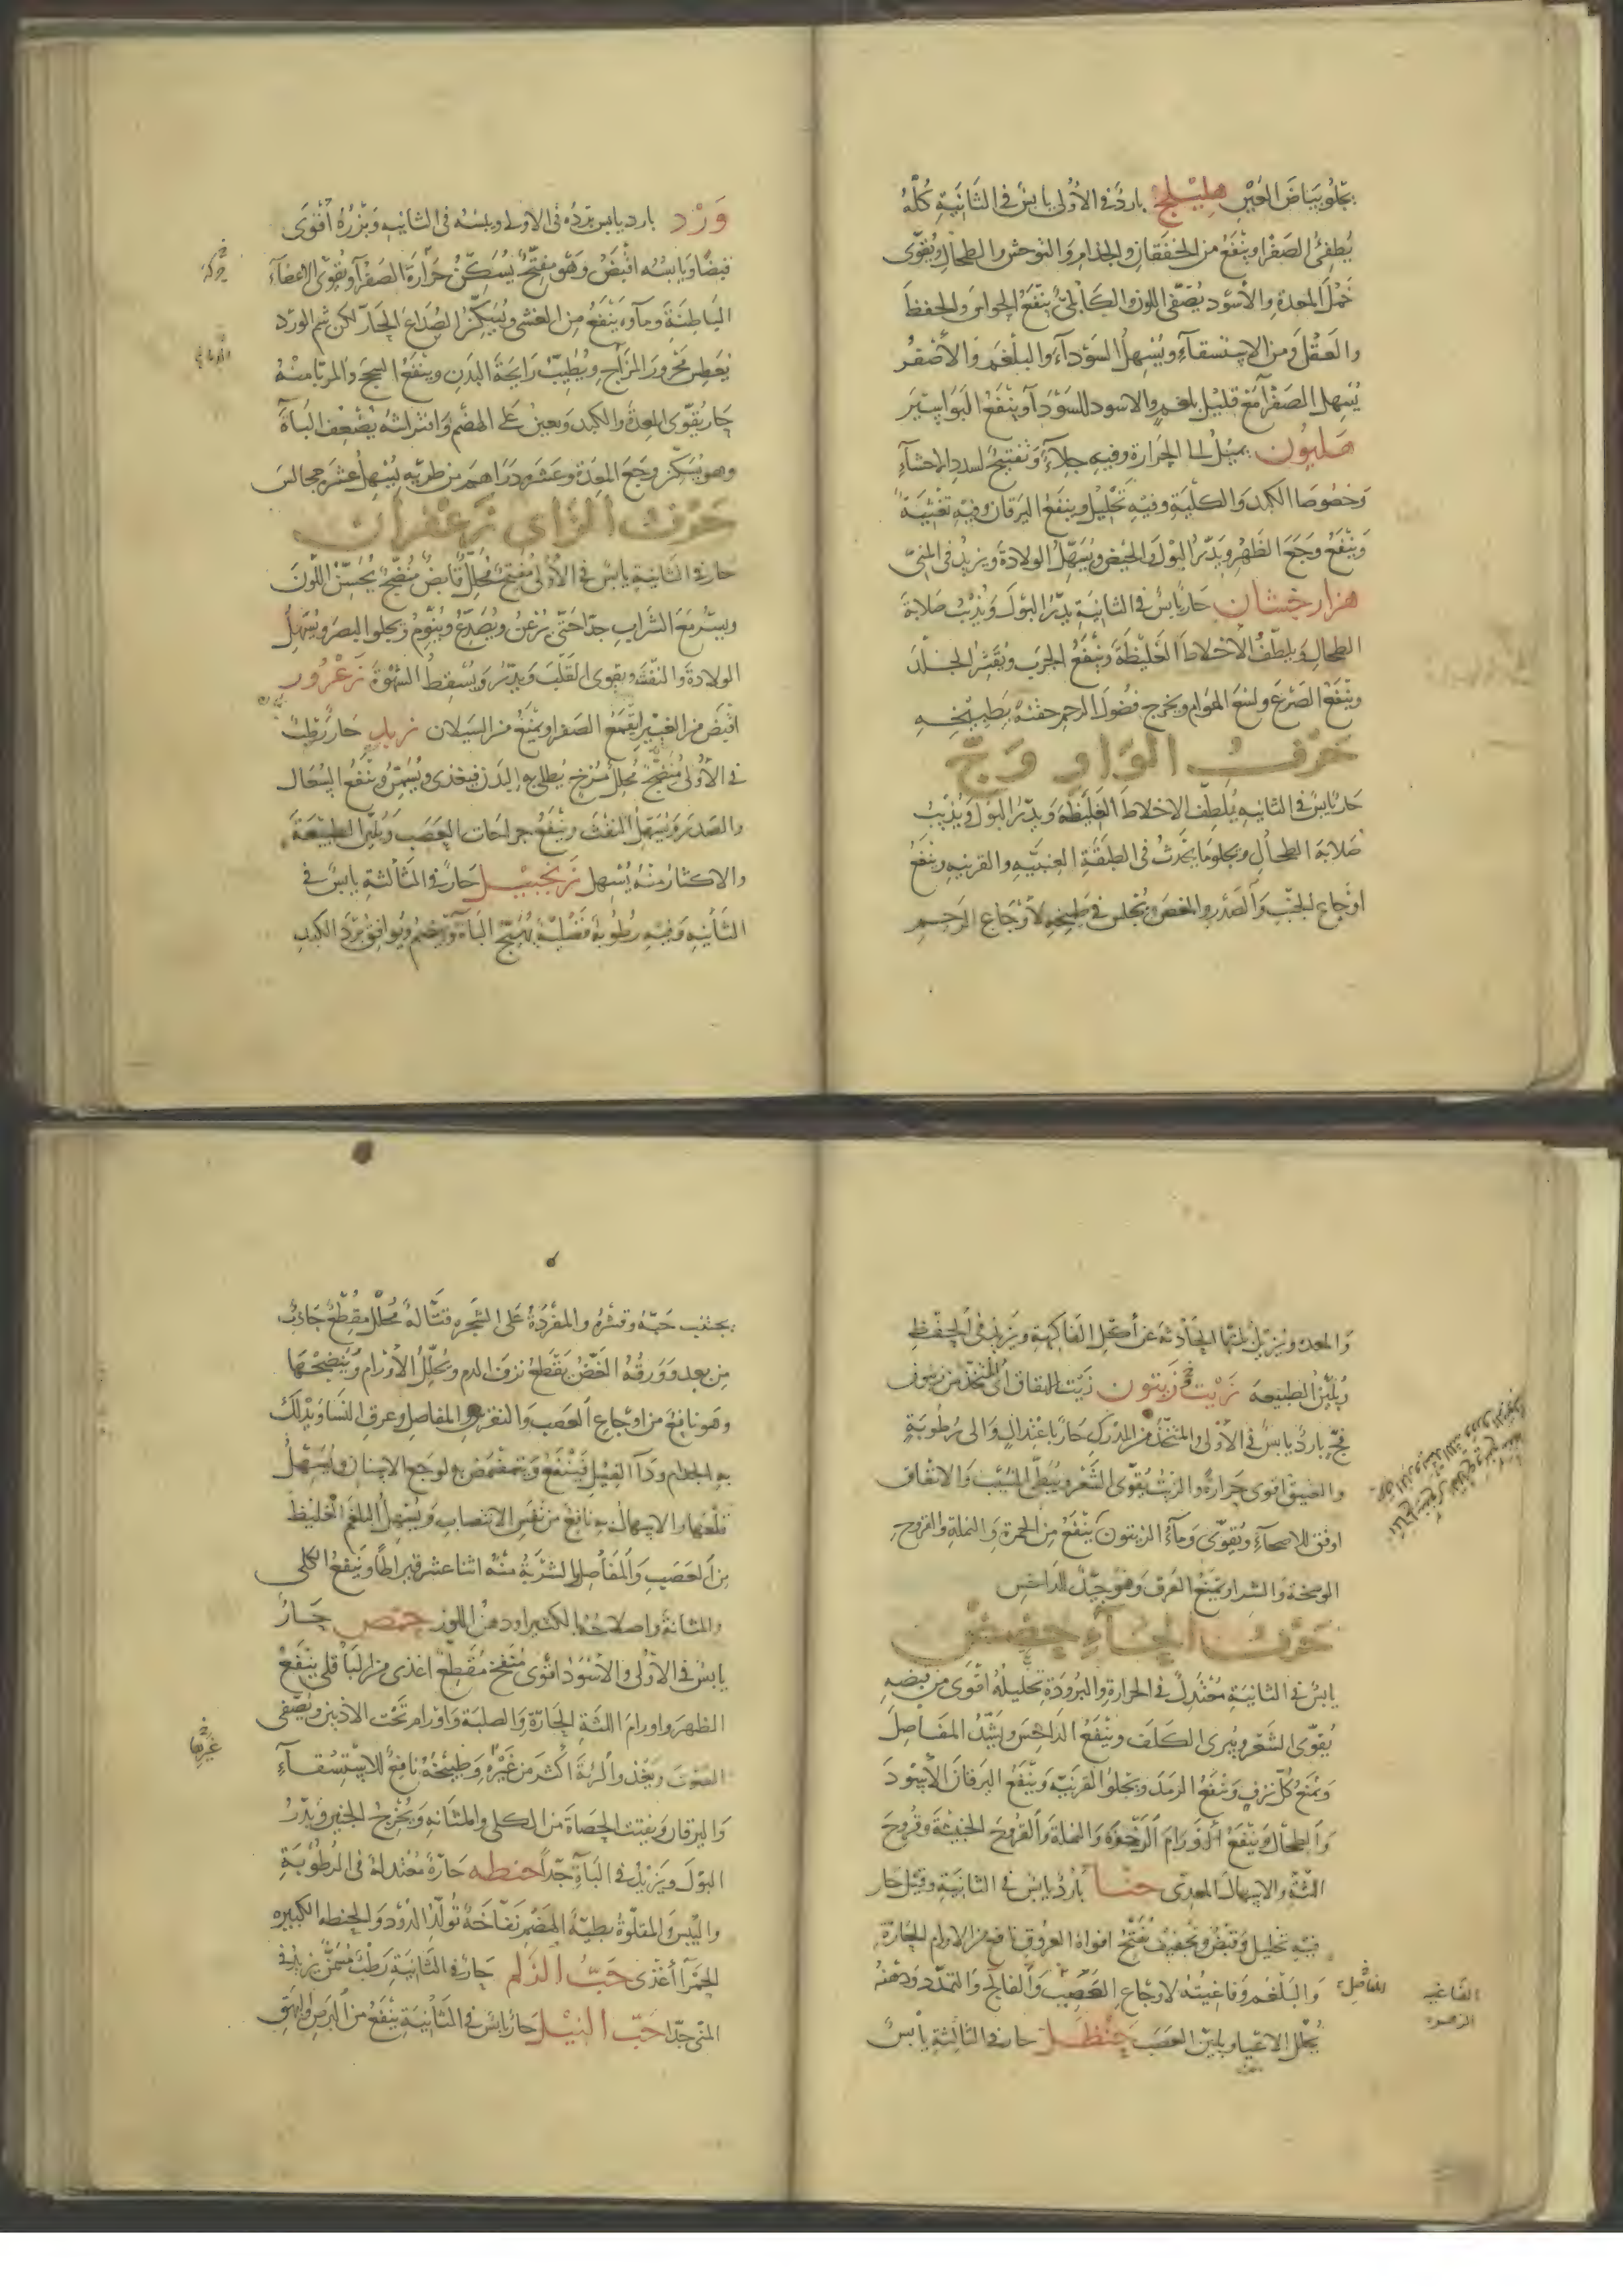 يجلو بياض العين هليلج بارد في الأولى يابس في الثانية كله
يطفئ الصفرا وينفع من الخفقان والجذام والتوحش والطحال ويقوى
خمل المعدة والأسود يصفى اللون والكابلي ينفع الحواس والحفظ
والعقل ومن الاستسقاء ويسهل السوداء والبلغم والأصفر
يسهل الصفرا مع قليل بلغم والاسود للسودا وينفع البواسير
هليون يميل الى الحرارة وفيه جلاء وتفتيح لسدد الاحشاء
وخصوصا الكبد والكلية وفيه تحليل وينفع اليرقان وفيه تغثية
وينفع وجع الظهر ويدر البول والحيض ويسهل الولادة ويزيد في المنى
هزارجشان حار يابس في الثانية يدر البول ويذيب صلابة
الطحال ويلطف الاخلاط الغليظة وينفع الجرب ويقشر الجلد
وينفع الصرع ولسع الهوام ويخرج فضول الرحم حقنة بطبيخه
حرف الواو وج
حار يابس في الثانيه يلطف الاخلاط الغليظه ويدر البول ويذيب
صلابة الطحال ويجلو ما يحدث في الطبقة العنبيه والقرنيه وينفع
اوجاع الجنب والصدر والمغص ويجلس في طبيخه لاوجاع الرحم
ورد بارد يابس برده في الاولى ويبسه في الثانيه وبزره أقوى
قبضا ويابسه اقبض وهو مفتح يسكن حرارة الصفرا ويقوى الاعضاء
الباطنة وماوه ينفع من الغشى ويسكن الصداع الحار لكن شم الورد
يعطس محرور المزاج ويطيب رايحة البدن وينفع السحج والمربا منه
حار يقوى المعدة والكبد ويعين على الهضم وافتراشه يضعف الباة
وهو يسكن وجع المعدة وعشرة دراهم من طريه يسهل عشرة مجالس
حرف الزاى زعفران
حار في الثانية يابس في الأولى مفتح محلل قابض منضج يحسن اللون
ويسر مع الشراب جدا حتى يرعن ويصدع وينوم ويجلو البصر ويسهل
الولادة والنفث ويقوى القلب ويدر ويسقط الشهوة زعرور
اقبض من الغبيرا يقمع الصفرا ويمنع من السيلان زبد حار رطب
في الأولى منضج محلل مرخ يطلى به البدن فيغذى ويسمن وينفع السعال
والصدر ويسهل النفث وينفع جراحات العصب ويلين الطبيعة
والاكثار منه يسهل زنجبيل حار في الثالثة يابس في
الثانيه وفيه رطوبة فضلية يهيج الباة ويهضم ويوافق برد الكبد
والمعده ويزيل بلتها الحادثة عن أكل الفاكهة ويزيد في الحفظ
ويلين الطبيعه زيت وزيتون زيت الانفاق المتخذ من زيتون
فج بارد يابس في الأولى والمتخذ من المدرك حار باعتدال والى رطوبة
والعتيق اقوى حرارة والزيت يقوى الشعر ويبطئ الشيب والانفاق
اوفق للاصحاء ويقوى وماء الزيتون ينفع من الحمرة والنملة والقروح
الوسخة والشرا ويمنع العرق وهو جيد للداحس
حرف الحاء حضض
يابس في الثانية معتدل في الحرارة والبرودة تحليله أقوى من قبضه
يقوى الشعر ويبرى الكلف وينفع الداحس ويشد المفاصل
ويمنع كل نزف وينفع الرمد ويجلو القرنية وينفع اليرقان الأسود
والطحال وينفع الاورام الرخوة والنملة والقروح الخبيثة وقروح
اللثة والاسهال المعدى حنا بارد يابس في الثانية وقيل حار
فيه تحليل وقبض وتجفيف يفتح افواه العروق نافع من الاورام الحارة
والبلغم وفاغيته لاوجاع العصب والفالج والتمدد ودهنه
يحلل الاعيا ويلين العصب حنظل حار في الثالثة يابس
المفاصل
الفاغيه
الزهره
يجتنب حبه وقشره والمفردة على الشجره قتالة محلل مقطع جاذب
من بعيد وورقه الغض يقطع نزف الدم ويحلل الأورام وينضجها
وهو نافع من اوجاع العصب والنقرس والمفاصل وعرق النسا ويدلك
به الجذام ودآ الفيل فينفع ويتمضمض به لوجع الاسنان ويسهل
قلعها والاسهال به نافع من نفس الانتصاب ويسهل البلغم الغليظ
من العصب والمفاصل والشربة منه اثنا عشر قيراطا وينفع الكلى
والمثانة واصلاحه بالكثيرا ودهن اللوز حمص حار
يابس في الأولى والأسود اقوى منفخ مقطع اغذى من الباقلى ينفع
الظهر واورام اللثة الحارة والصلبة واورام تحت الاذنين ويصفى
الصوت ويغذو الرية اكثر من غيره وطبيخه نافع للاستسقاء
واليرقان ويفتت الحصاة من الكلى والمثانه ويخرج الجنين ويدر
البول ويزيد في الباة جدا حنطه حارة معتدلة في الرطوبة
واليبس والمقلوة بطية الهضم نفاخة تولد الدود والحنطه الكبيره
الحمرا أغذى حب الزلم حار في الثانية رطب مسمن يزيد في
المنى جدا حب النيل حار يابس في الثانية ينفع من البرص والبهق